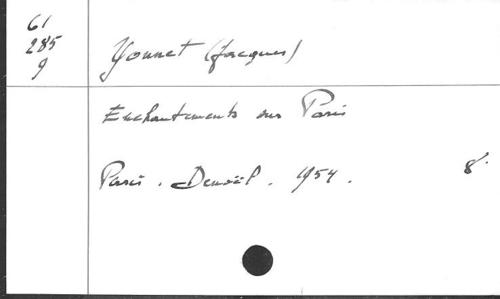 61
285
9
Yonnet (Jacques)
Enchantements sur Paris
Paris . Denoël . 1954 .
8°